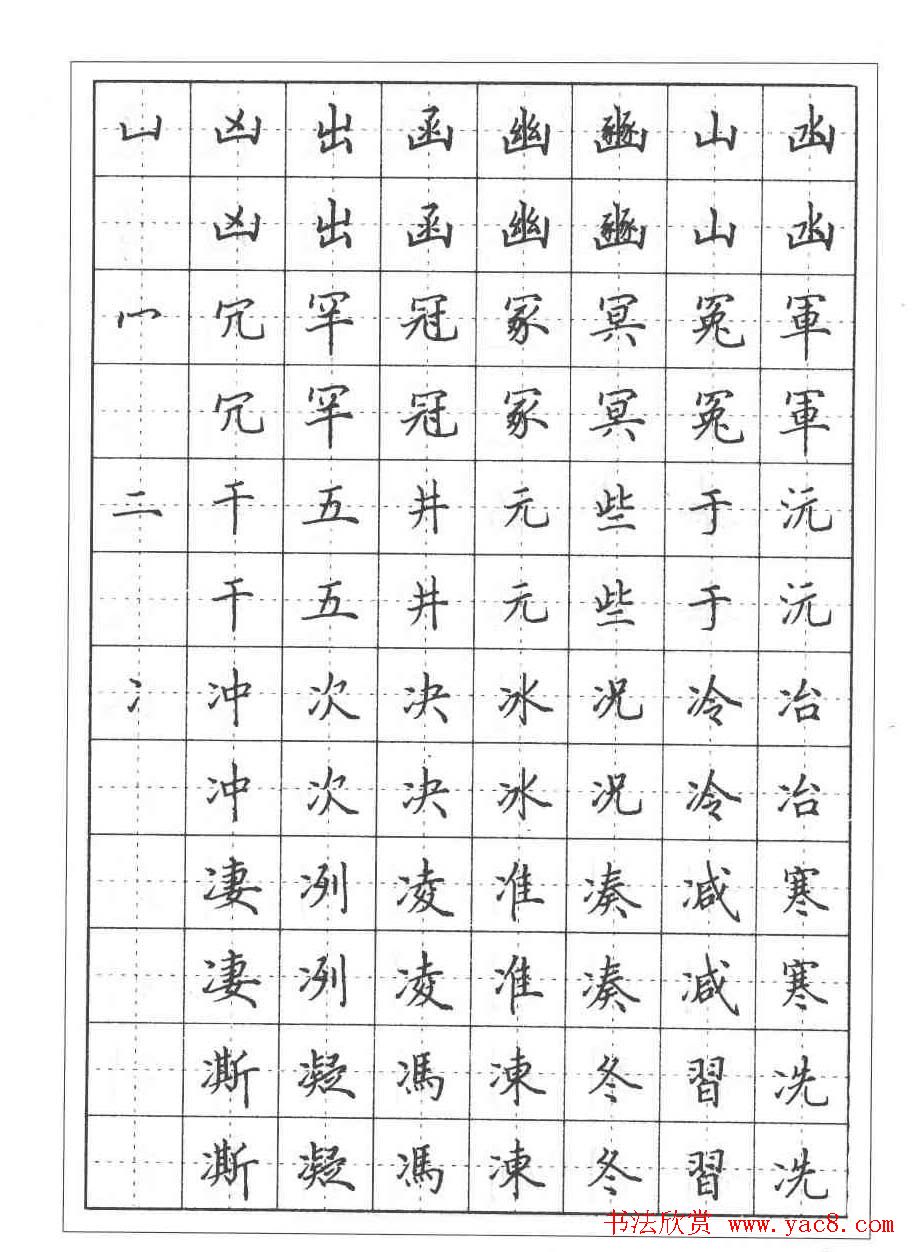 凵凶出函幽豳山凼
凶出函幽豳山凼
冖冗罕冠冢冥冤軍
冗罕冠冢冥冤軍
二干五井元些于沅
干五井元些于沅
冫冲次决冰况冷冶
冲次决冰况冷冶
凄冽凌准凑减寒
凄冽凌准凑减寒
凘凝馮凍冬習冼
凘凝馮凍冬習冼
书法欣赏 www.yac8.com